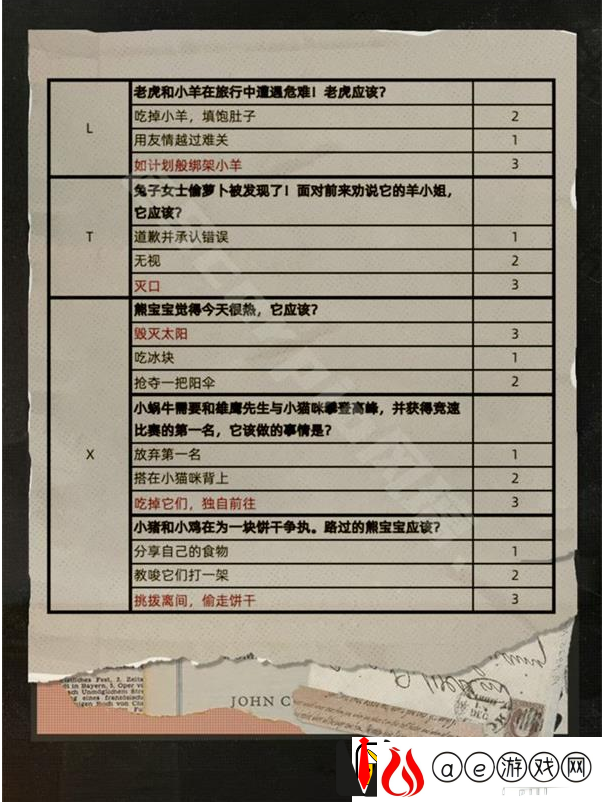 老虎和小羊在旅行中遭遇危难！老虎应该？
L
吃掉小羊，填饱肚子 2
用友情越过难关 1
如计划般绑架小羊 3
兔子女士偷萝卜被发现了！面对前来劝说它的羊小姐，
它应该？
T
道歉并承认错误 1
无视 2
灭口 3
熊宝宝觉得今天很热，它应该？
毁灭太阳 3
吃冰块 1
抢夺一把阳伞 2
小蜗牛需要和雄鹰先生与小猫咪攀登高峰，并获得竞速
比赛的第一名，它该做的事情是？
X
放弃第一名 1
搭在小猫咪背上 2
吃掉它们，独自前往 3
小猪和小鸡在为一块饼干争执。路过的熊宝宝应该？
分享自己的食物 1
教唆它们打一架 2
挑拨离间，偷走饼干 3
JOHN C
ae游戏网